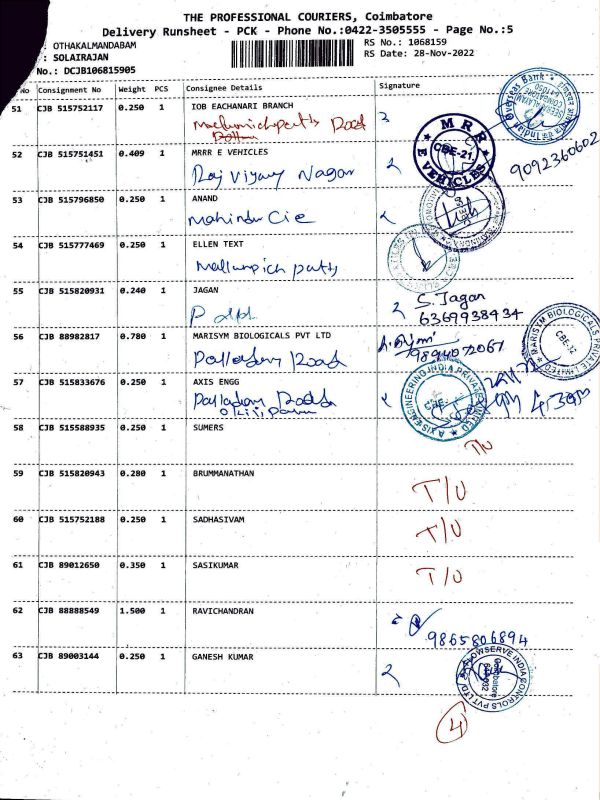 THE PROFESSIONAL COURIERS, Coimbatore
Delivery Runsheet - PCK - Phone No.:0422-3505555 - Page No.:5
: OTHAKALMANDABAM RS No.: 1068159
: SOLAIRAJAN RS Date: 28-Nov-2022
No.: DCJB106815905
No Consignment No Weight PCS Consignee Details Signature
51 CJB 515752117 0.250 1 IOB EACHANARI BRANCH
Road
52 CJB 515751451 0.409 1 MRRR E VEHICLES
MRR
E VEHICLES
CBE-21
Nagar
9092360602
53 CJB 515796850 0.250 1 ANAND
Mahindra Cie
54 CJB 515777469 0.250 1 ELLEN TEXT
55 CJB 515820931 0.240 1 JAGAN
S. Jagan
6369938434
56 CJB 88982817 0.780 1 MARISYM BIOLOGICALS PVT LTD
Palladam Road
9894072067
MARISYM BIOLOGICALS PRIVATE LIMITED
CBE-12
57 CJB 515833676 0.250 1 AXIS ENGG
Palladam Road
AXIS ENGINEERING INDIA PRIVATE LIMITED
4.30pm
58 CJB 515588935 0.250 1 SUMERS
T/U
59 CJB 515820943 0.280 1 BRUMMANATHAN
T/U
60 CJB 515752188 0.250 1 SADHASIVAM
T/U
61 CJB 89012650 0.350 1 SASIKUMAR
T/U
62 CJB 88888549 1.500 1 RAVICHANDRAN
9865806894
63 CJB 89003144 0.250 1 GANESH KUMAR
FLOWSERVE INDIA CONTROLS PVT LTD
Coimbatore
4